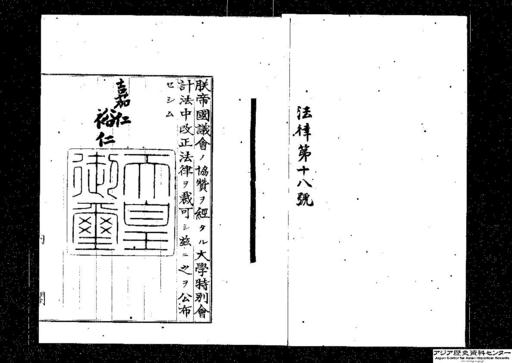 法律第十八號
朕帝國議會ノ協贊ヲ經タル大學特別會
計法中改正法律ヲ裁可シ玆ニ之ヲ公布
セシム
嘉仁
裕仁
天皇
御璽
内閣
アジア歴史資料センター
Japan Center for Asian Historical Records